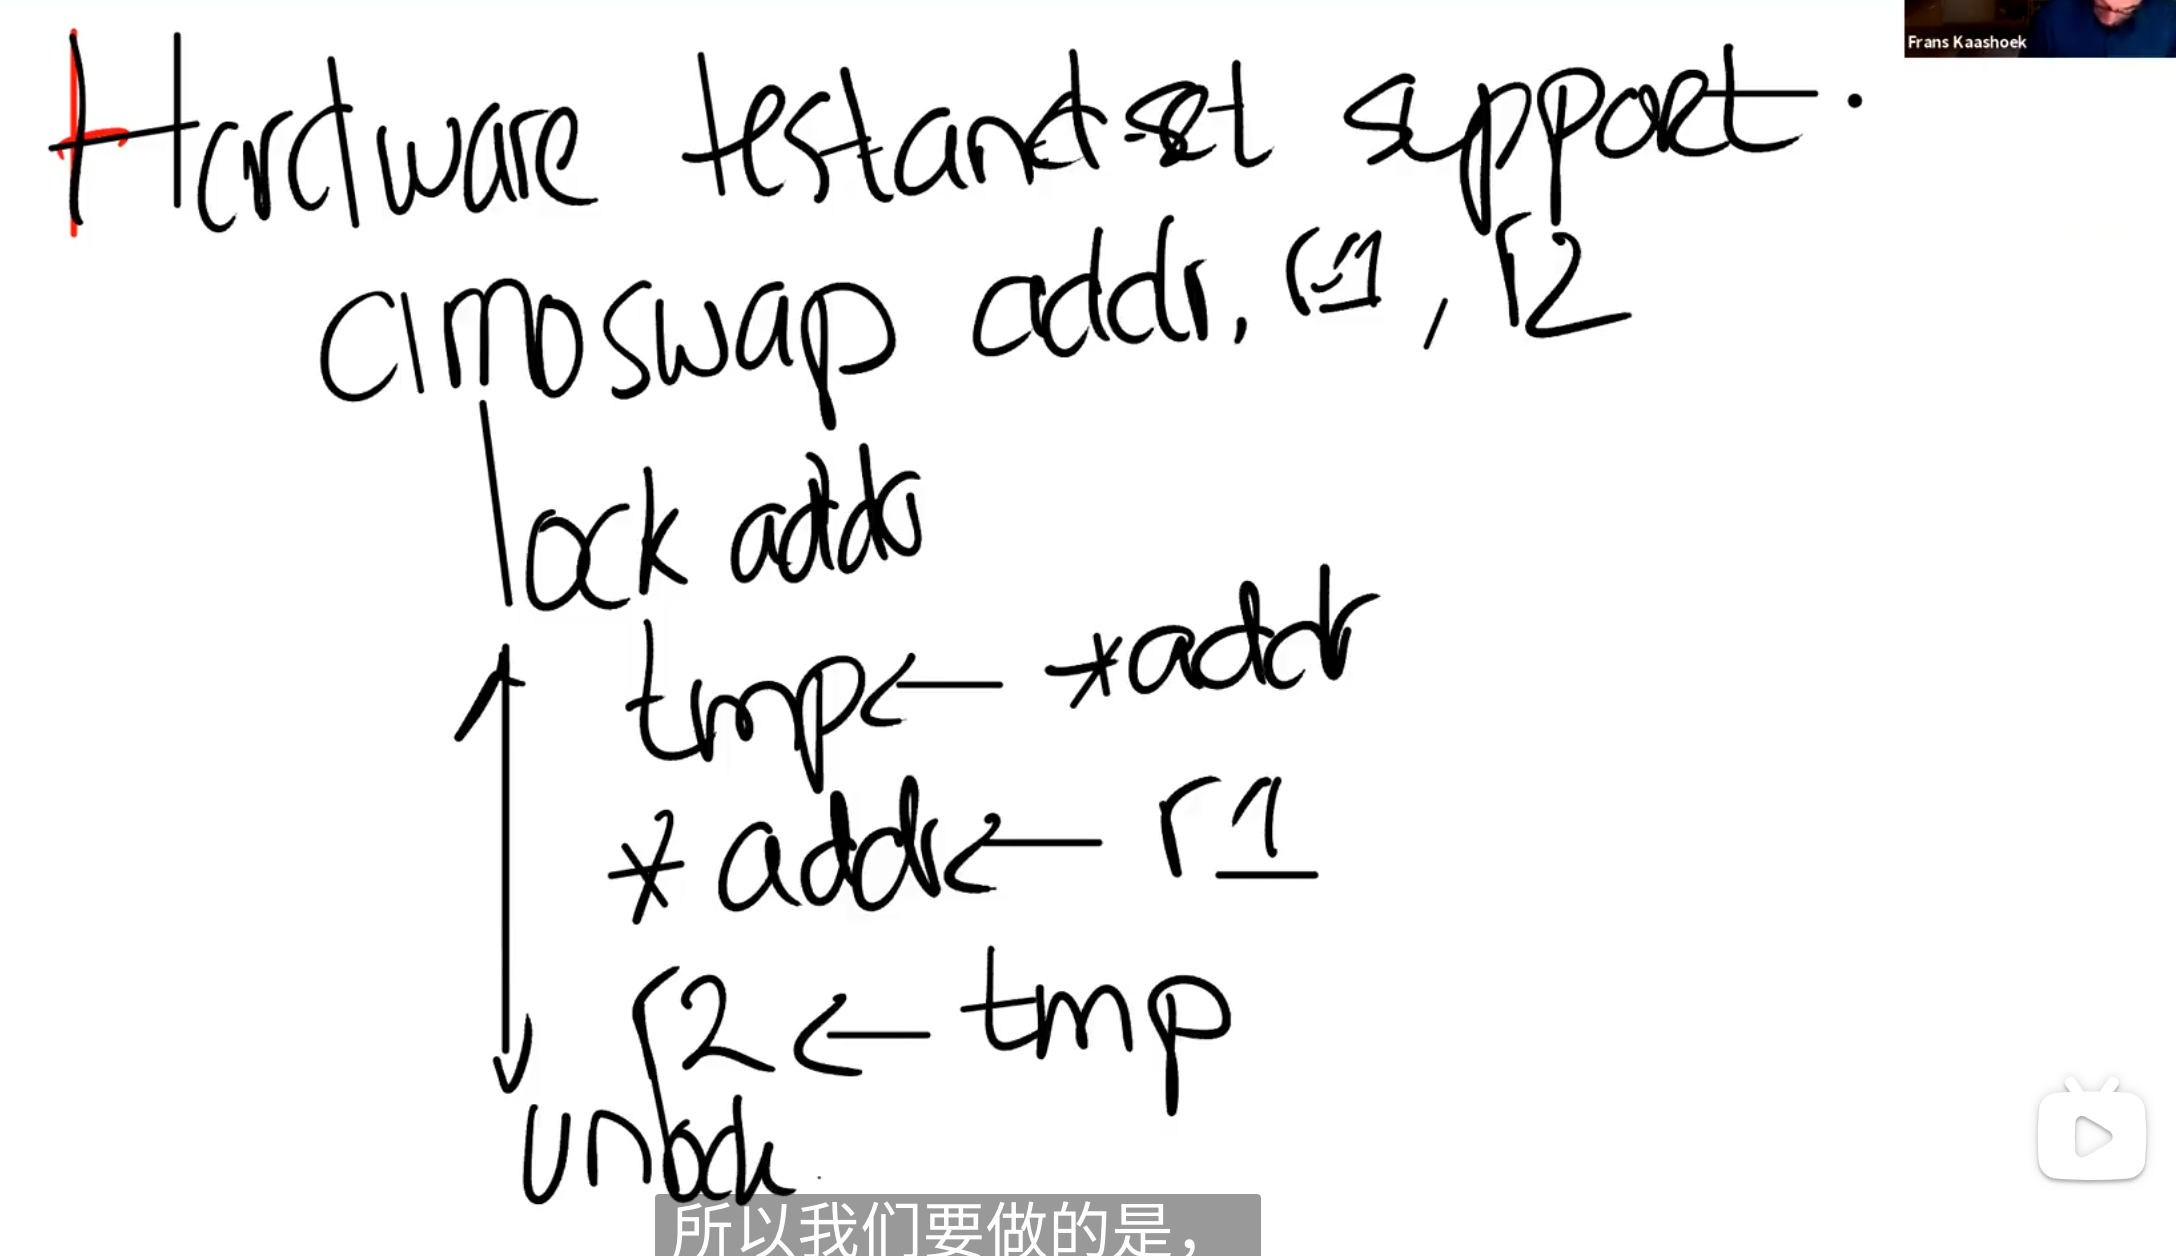 Frans Kaashoek
Hardware test and-set support.
amoswap addr, r1, r2
lock addr
tmp ← *addr
* addr ← r1
r2 ← tmp
unlock
所以我们要做的是，